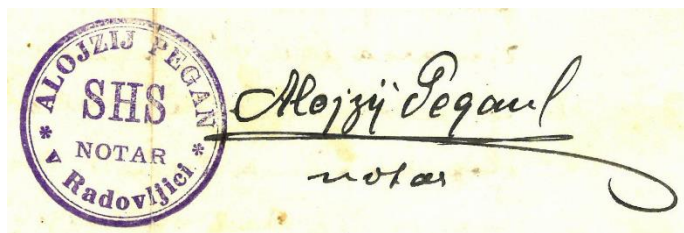 ALOJZIJ PEGAN
SHS
NOTAR
* v Radovljici *
Alojzij Pegan
notar